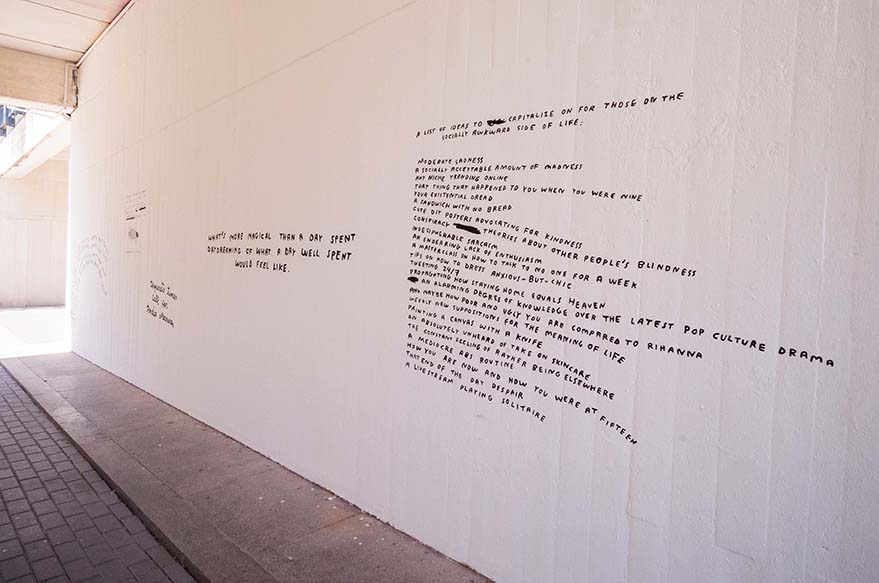 WHAT'S MORE MAGICAL THAN A DAY SPENT
DAYDREAMING OF WHAT A DAY WELL SPENT
WOULD FEEL LIKE.
A LIST OF IDEAS TO CAPITALIZE ON FOR THOSE ON THE
SOCIALLY AWKWARD SIDE OF LIFE:
MODERATE SADNESS
A SOCIALLY ACCEPTABLE AMOUNT OF MADNESS
ANY NICHE TRENDING ONLINE
THAT THING THAT HAPPENED TO YOU WHEN YOU WERE NINE
YOUR EXISTENTIAL DREAD
A SANDWICH WITH NO BREAD
CUTE DIY POSTERS ADVOCATING FOR KINDNESS
CONSPIRACY THEORIES ABOUT OTHER PEOPLE'S BLINDNESS
INDECIPHERABLE SARCASM
AN ENDEARING LACK OF ENTHUSIASM
A MASTERCLASS ON HOW TO TALK TO NO ONE FOR A WEEK
TIPS ON HOW TO DRESS ANXIOUS-BUT-CHIC
TWEETING 24/7
PROPAGATING HOW STAYING HOME EQUALS HEAVEN
AN ALARMING DEGREE OF KNOWLEDGE OVER THE LATEST POP CULTURE DRAMA
AND MAYBE HOW POOR AND UGLY YOU ARE COMPARED TO RIHANNA
WEEKLY NEW SUPPOSITIONS FOR THE MEANING OF LIFE
PAINTING A CANVAS WITH A KNIFE
AN ABSOLUTELY UNHEARD OF TAKE ON SKINCARE
THE CONSTANT FEELING OF RATHER BEING ELSEWHERE
A MEDIOCRE ABS ROUTINE
HOW YOU ARE NOW AND HOW YOU WERE AT FIFTEEN
THAT END OF THE DAY DESPAIR
A LIVESTREAM PLAYING SOLITAIRE